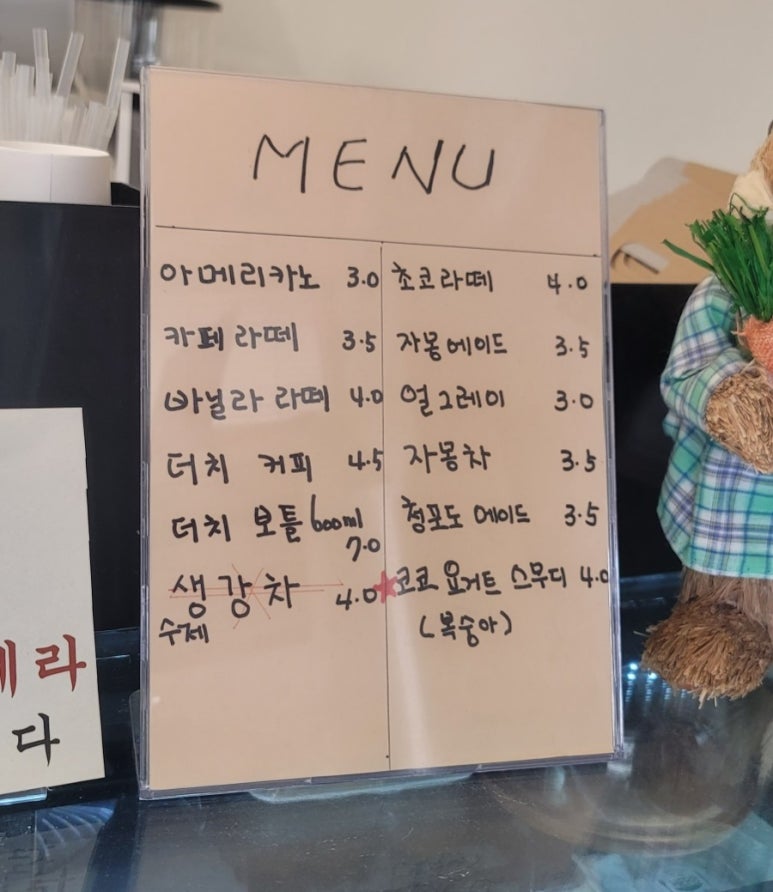 MENU
아메리카노 3.0
카페 라떼 3.5
바닐라 라떼 4.0
더치 커피 4.5
더치 보틀 600ml
7.0
생강차 4.0
수제
초코라떼 4.0
자몽에이드 3.5
얼그레이 3.0
자몽차 3.5
청포도 에이드 3.5
★코코 요거트 스무디 4.0
(복숭아)
라
다